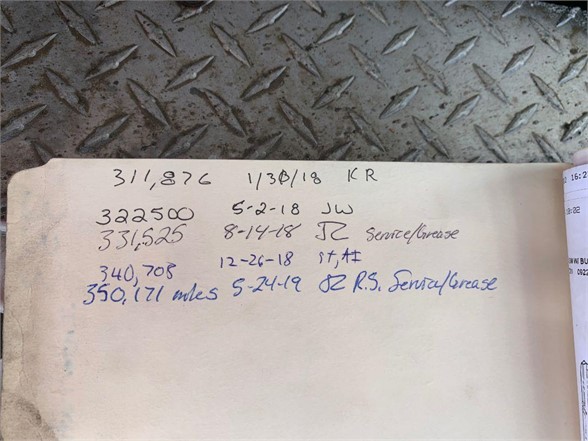 311,876 1/30/18 KR
322500 5-2-18 JW
331,525 8-14-18 JZ Service/Grease
340,708 12-26-18
350,171 miles 5-24-19 JZ R.S. Service/Grease
16:2